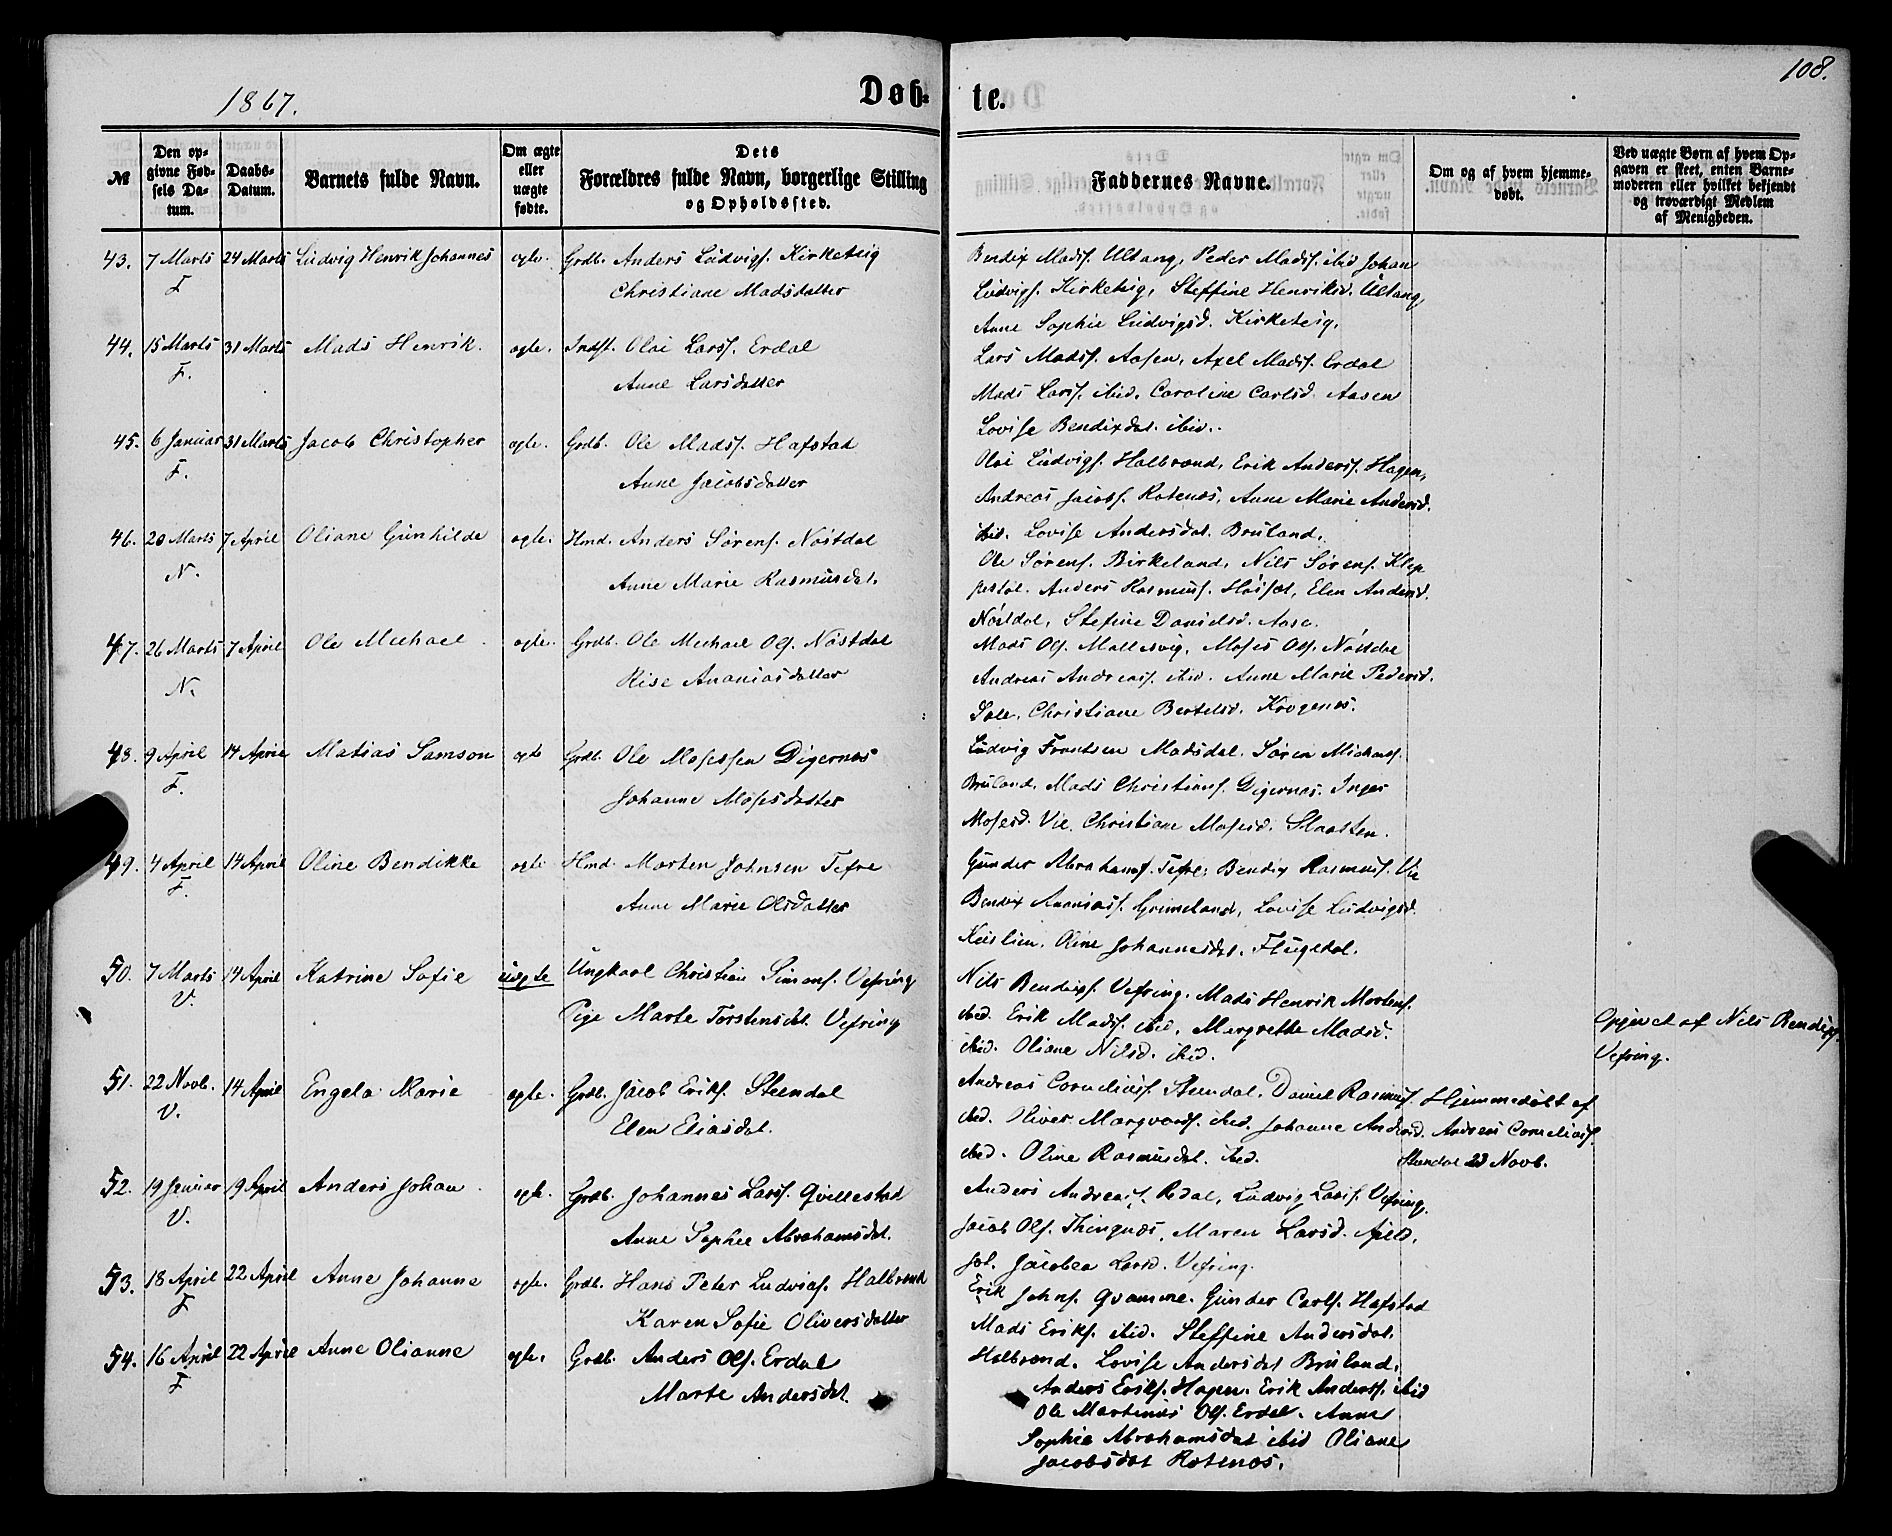 1867.
Døb-
te.
108.
№
Den op-
givne Fød-
sels Da-
tum.
Daabs-
Datum.
Barnets fulde Navn.
Om ægte
eller
uægte
fødte.
Dets
Forældres fulde Navn, borgerlige Stilling
og Opholdssted.
Faddernes Navne.
Om og af hvem hjemme-
døbt.
Ved uægte Børn af hvem Op-
gaven er skeet, enten Barne-
moderen eller hvilket bekjendt
og troværdigt Medlem
af Menigheden.
43. 7 Marts 24 Marts Ludvig Henrik Johannes ægte. Grdb. Anders Ludvigs. Kirketeig
F
Christiane Madsdatter
Bendix Mads. Ultang, Peder Mads. ibid Johan
Ludvigs. Kirketeig, Steffine Henriksd. Ultang,
Anne Sophie Ludvigsd. Kirketeig.
44. 15 Marts 31 Marts Mads Henrik. ægte. Indst. Olai Larss. Erdal
F.
Anne Larsdatter
Lars Madss. Aasen, Axel Madss. Erdal
Mads Larss. ibid. Caroline Carlsd. Aasen
Lovise Bendixdat. ibid.
45. 6 Januar 31 Marts Jacob Christopher ægte. Grdb. Ole Madss. Hafstad
F.
Anne Jacobsdatter
Olai Ludvigs. Halbrend, Erik Anderss. Hagen,
Andreas Jacobs. Rotenæs, Anne Marie Andersd.
ibid. Lovise Andersdat. Bruland.
46. 20 Marts 7 April Oliane Gunhilde ægte. Hmd. Anders Sørens. Nøstdal
N.
Anne Marie Rasmusdat.
Ole Sørens. Birkeland, Nils Sørens. Klep
pestøl. Anders Rasmus. Høiset, Elen Andersd.
Nøstdal, Stefine Danielsd. Aase.
47. 26 Marts 7 April Ole Michael ægte. Grdb. Ole Michael Ols. Nøstdal
N.
Rise Ananiasdatter
Mads Ols. Mallesvig, Moses Ols. Nøstdal
Andreas Andreass. ibid. Anne Marie Pedersd.
Sole, Christiane Bertelsd. Krogenæs.
48. 9 April 14 April Matias Samson ægte Grdb. Ole Mosessen Digernæs
F.
Johanne Mosesdatter
Ludvig Frantsen Madsdal. Søren Michaels.
Bruland, Mads Christians. Digernæs. Inger
Mosesd. Vie, Christiane Mosesd. Slaatten.
49. 4 April 14 April Oline Bendikke ægte Hmd. Morten Johnsen Tefre
F.
Anne Marie Olsdatter
Gunder Abrahams. Tefre, Bendix Rasmuss. Vie
Bendix Ananiass. Grimeland, Lovise Ludvigsd.
Oline Johannesdat. Flugedal.
50. 7 Marts 14 April Katrine Sofie uægte Ungkarl Christian Simons. Vefring
V.
Pige Marte Torstensdat. Vefring
Nils Bendixs. Vefring. Mads Henrik Mortens.
ibid. Erik Madss. ibid, Margrethe Madsd.
ibid. Oliane Nilsd. ibid.
Opgivet af Nils Bendixs.
Vefring.
51. 22 Novb. 14 April Engela Marie ægte. Grdb. Jacob Eriks. Steendal
V.
Elen Eliasdat.
Andreas Corneliuss. Steendal, Daniel Rasmuss.
ibid. Oliver Marqvards. ibid. Johanne Andersd.
ibid. Oline Rasmusdat. ibid.
Hjemmedøbt af
Andreas Corneliuss.
Stendal 23 Novb.
52. 19 Januar 19 April Anders Johan ægte. Grdb. Johannes Larss. Qvillestad
V.
Anne Sophie Abrahamsdat.
Anders Andreass. Redal, Ludvig Larss. Vefring,
Jacob Ols. Thingnæs, Maren Larsd.
Jacobea Larsd. Vefring.
53. 18 April 22 April Anne Johanne ægte. Grdb. Hans Peter Ludvigs. Halbrend
F
Karen Sofie Oliversdatter
Erik Johns. Qvamme. Gunder Carls. Hafstad
Mads Eriks. ibid. Steffine Andersdat.
Halbrend. Lovise Andersdat Bruland.
54. 16 April 22 April Anne Olianne ægte. Grdb. Anders Ols. Erdal
F
Marte Andersdat.
Anders Eriks. Hagen. Erik Anderss. ibid
Ole Martinus Ols. Erdal. Anne
Sophie Abrahamsdat ibid Oliane
Jacobsdat Rotenæs.